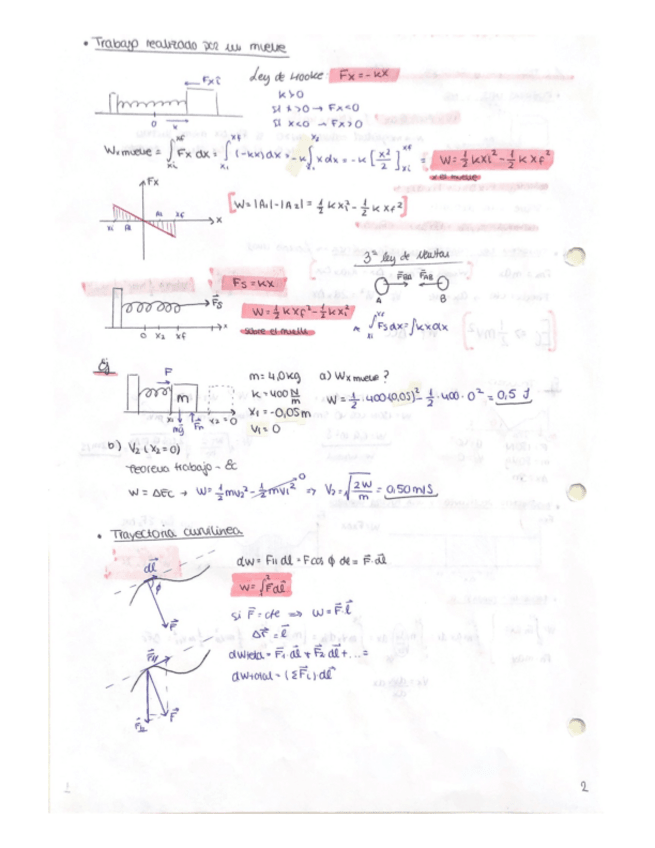 • Trabajo realizado por un muelle
Ley de Hooke Fx = -kx
Fx î
k>0
si x>0 → Fx<0
si x<0 → Fx>0
0 x
Wx muelle = ∫xi^xf Fx dx = ∫xi^xf (-kx)dx = -k∫xi^xf x dx = -k [x²/2]xi^xf = W = 1/2 kxi² - 1/2 kxf²
x el muelle
Fx
W = |A1| - |A2| = 1/2 kxi² - 1/2 kxf²
A2 xf x
xi A1
3ª ley de Newton
Fs = kx
F⃗BA F⃗AB
A B
F⃗s
W = 1/2 kxf² - 1/2 kxi²
sobre el muelle
∫xi^xf Fs dx = ∫kx dx
0 x2 xf x
Ej
F
m
x1 x2 = 0
mg⃗ Fn
m = 4,0 kg a) Wx muelle?
k = 400 N/m W = 1/2 · 400(0,05)² - 1/2 · 400 · 0² = 0,5 J
x1 = -0,05m
v1 = 0
b) V2 (x2=0)
Teorema trabajo - Ec
W = ΔEC → W = 1/2 mv2² - 1/2 mv1² 0 ⇒ V2 = √2W/m = 0,50 m/s
• Trayectoria curvilínea
dl⃗
ϕ
F⃗
dW = F∥ dl = F cos ϕ dl = F⃗·dl⃗
W = ∫1^2 F⃗dl⃗
si F⃗ = cte ⇒ W = F⃗·l⃗
Δr⃗ = l⃗
F⃗∥
F⃗
dWtotal = F⃗1·dl⃗ + F⃗2·dl⃗ + ... =
dWtotal = (ΣF⃗i)·dl⃗
2